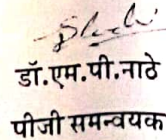 डॉ.एम.पी.नाठे
पीजी समन्वयक